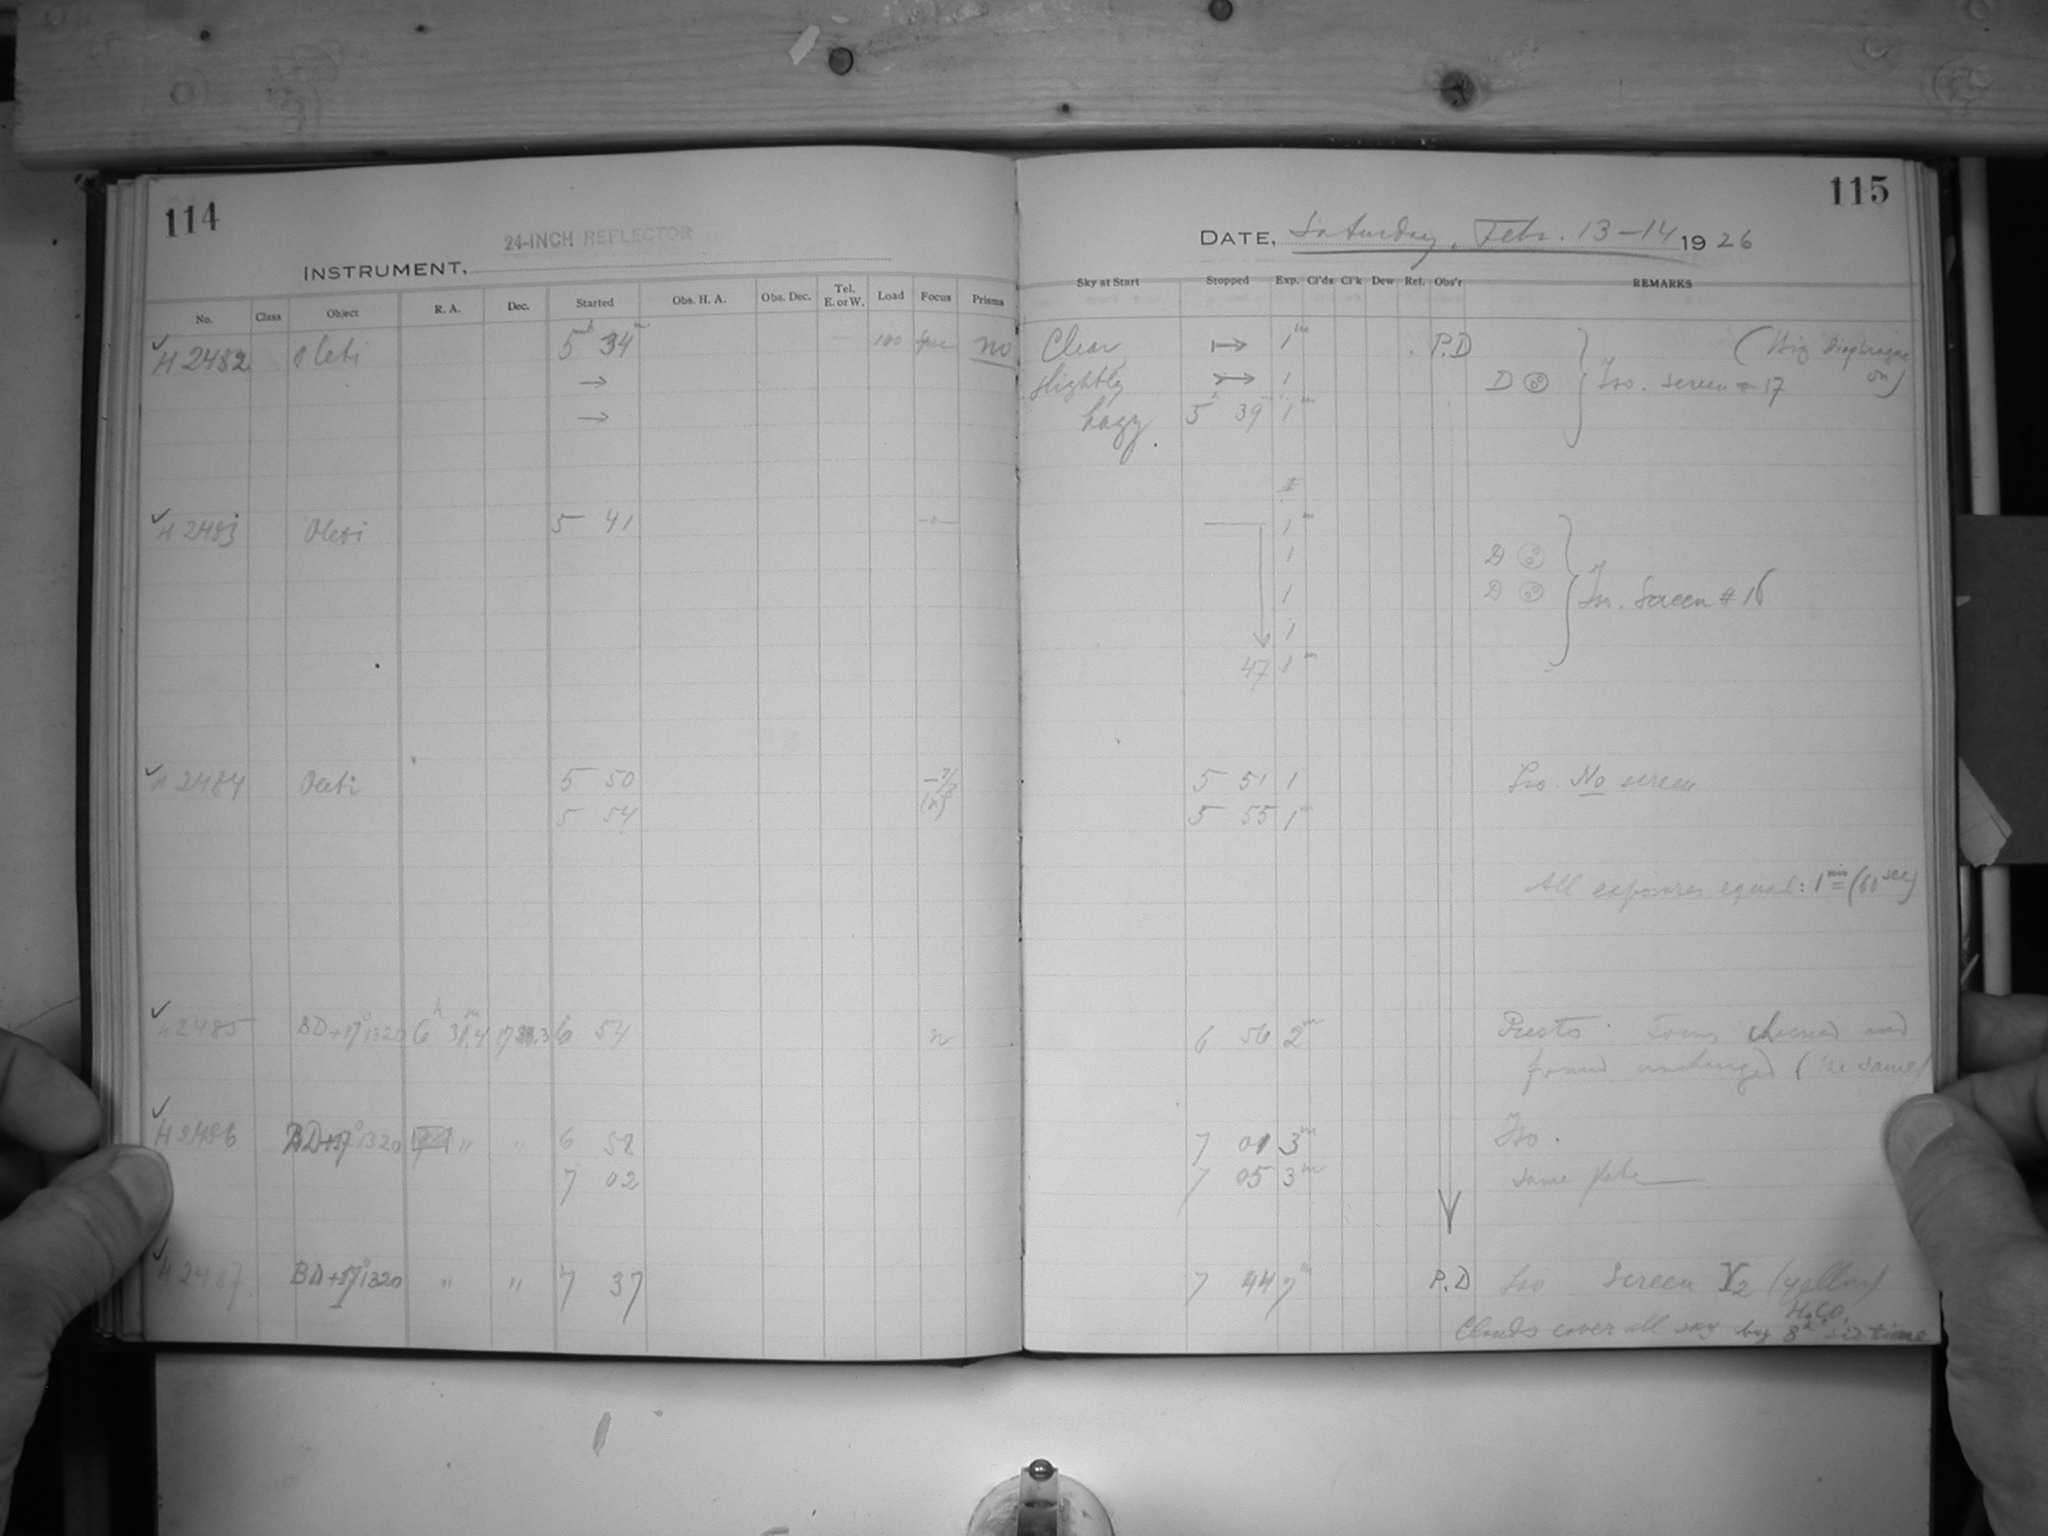 114
24-INCH REFLECTOR
INSTRUMENT,
No. Class Object R. A. Dec. Started Obs. H. A. Obs. Dec. Tel. E. or W. Load Focus Prisms
H 2482 o Ceti 5h 34m 100 no
→
→
H 2483 o Ceti 5 41
H 2484 o Ceti 5 50
5 54
H 2485 BD+17°1320 6h 31m.4 6 54
H 2486 BD+17°1320 " " 6 58
7 02
H 2487 BD+17°1320 " " 7 37
115
DATE, Saturday, Febr. 13-14 1926
Sky at Start Stopped Exp. Cl'ds Cl'k Dew Ref. Obs'r REMARKS
Clear → 1m P.D (Big diaphragm on)
slightly → 1 D Iso. screen # 17
hazy. 5h 39 1m
1m
1 D
1 D Iso. Screen # 16
1
47 1m
5 51 1 Iso. No screen
5 55 1m
All exposures equal: 1min = (60sec)
6 56 2m Presto. Focus checked and
found unchanged (the same)
7 01 3m Iso.
7 05 3m same plate
7 44 7m P.D Iso Screen Y2 (yellow)
Clouds cover all sky by 8h sid. time
H.C.O.